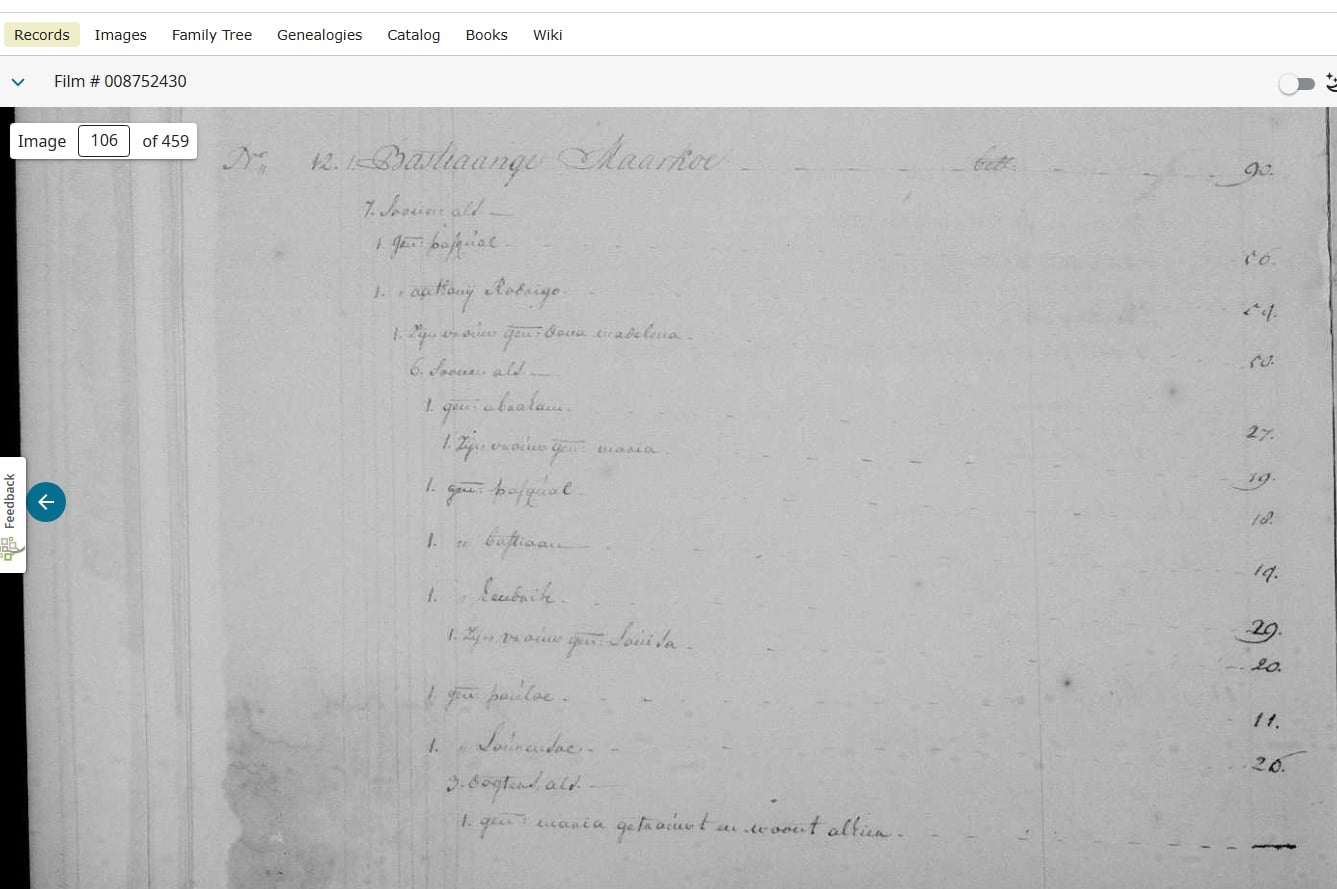 Records Images Family Tree Genealogies Catalog Books Wiki
Film # 008752430
Image 106 of 459
Feedback
Nr„ 12. 1. Bastiaange Maarkoe bett: 90.
7. Soonen als
1. gen: pasqual 56.
1. „ anthonij Rodrigo 54.
1. Zijn vrouw gen: Dona madelena 50.
6. Soonen als
1. gen: abraham 27.
1. Zijn vrouw gen: maria 19.
1. gen: pasqual 18.
1. „ bastiaan 19.
1. „ hendrik 29.
1. Zijn vrouw gen: Louisa 20.
1. gen: pauloe 11.
1. „ 26.
3. dogters, als
1. gen: maria getrouwt en woont alhier